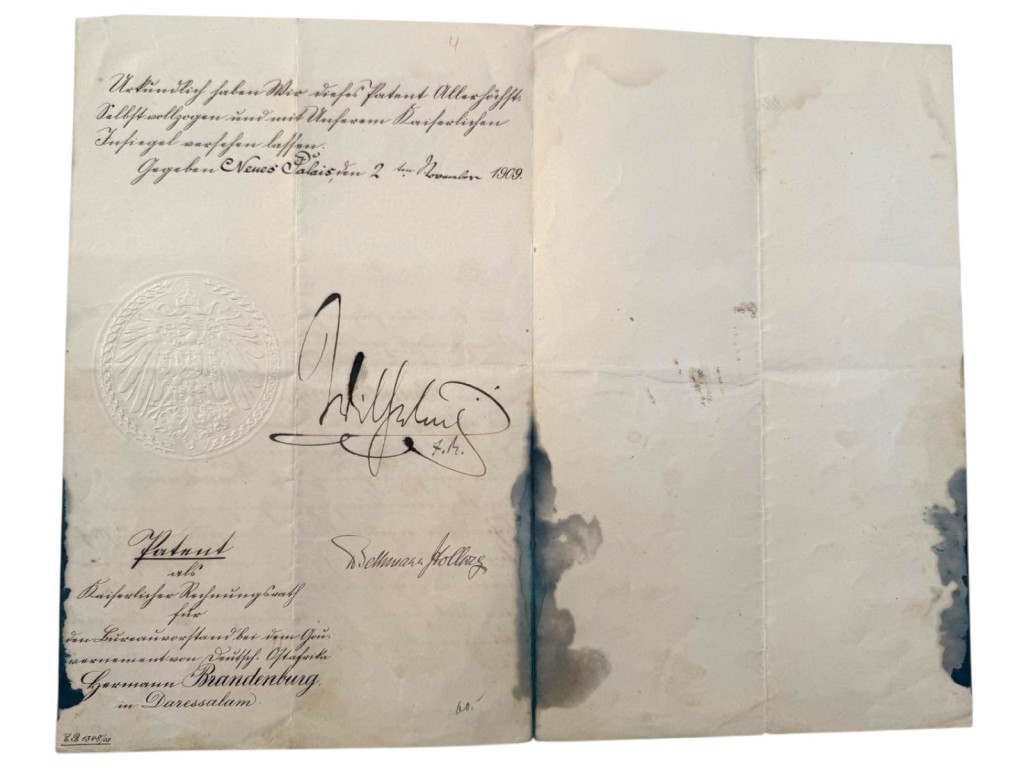 4
Urkundlich haben Wir dieses Patent Allerhöchst-
Selbst vollzogen und mit Unserem Kaiserlichen
Insiegel versehen lassen.
Gegeben Neues Palais, den 2 ten November 1909.
Wilhelm
I.R.
Bethmann Hollweg
Patent
als
Kaiserlicher Rechnungsrath
für
den Bureauvorstand bei dem Gou-
vernement von Deutsch-Ostafrika
Hermann Brandenburg.
in Daressalam.
60.-